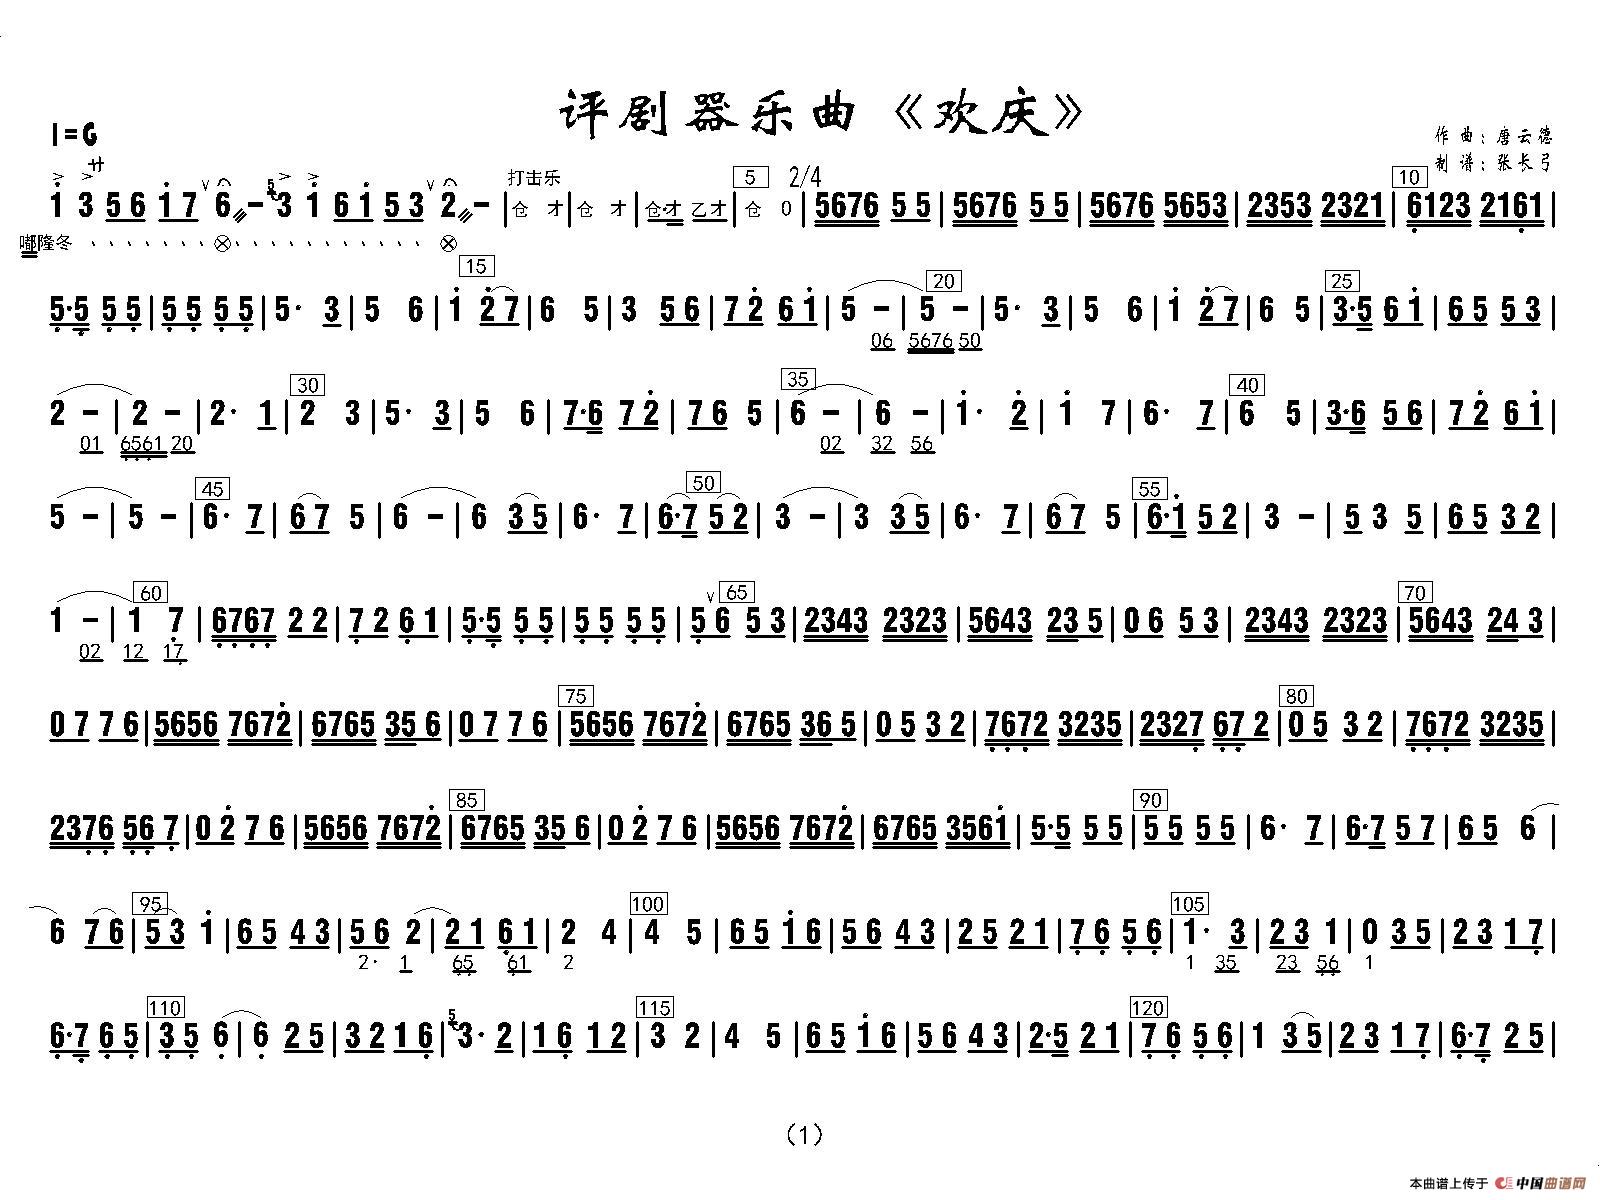 评剧器乐曲《欢庆》
1=G
作曲：唐云德
制谱：张长弓
サ 打击乐 5 2/4 10
1 3 5 6 1 7 6 - 5 3 1 6 1 5 3 2 - | 仓 才 | 仓 才 | 仓·才 乙才 | 仓 0 | 5676 5 5 | 5676 5 5 | 5676 5653 | 2353 2321 | 6123 2161 |
嘟隆冬
15 20 25
5·5 5 5 | 5 5 5 5 | 5· 3 | 5 6 | 1 2 7 | 6 5 | 3 5 6 | 7 2 6 1 | 5 - | 5 - | 5· 3 | 5 6 | 1 2 7 | 6 5 | 3·5 6 1 | 6 5 5 3 |
06 5676 50
30 35 40
2 - | 2 - | 2· 1 | 2 3 | 5· 3 | 5 6 | 7·6 7 2 | 7 6 5 | 6 - | 6 - | 1· 2 | 1 7 | 6· 7 | 6 5 | 3·6 5 6 | 7 2 6 1 |
01 6561 20 02 32 56
45 50 55
5 - | 5 - | 6· 7 | 6 7 5 | 6 - | 6 3 5 | 6· 7 | 6·7 5 2 | 3 - | 3 3 5 | 6· 7 | 6 7 5 | 6·1 5 2 | 3 - | 5 3 5 | 6 5 3 2 |
60 65 70
1 - | 1 7 | 6767 2 2 | 7 2 6 1 | 5·5 5 5 | 5 5 5 5 | 5 6 5 3 | 2343 2323 | 5643 23 5 | 0 6 5 3 | 2343 2323 | 5643 24 3 |
02 12 17
75 80
0 7 7 6 | 5656 7672 | 6765 35 6 | 0 7 7 6 | 5656 7672 | 6765 36 5 | 0 5 3 2 | 7672 3235 | 2327 67 2 | 0 5 3 2 | 7672 3235 |
85 90
2376 56 7 | 0 2 7 6 | 5656 7672 | 6765 35 6 | 0 2 7 6 | 5656 7672 | 6765 3561 | 5·5 5 5 | 5 5 5 5 | 6· 7 | 6·7 5 7 | 6 5 6 |
95 100 105
6 7 6 | 5 3 1 | 6 5 4 3 | 5 6 2 | 2 1 6 1 | 2 4 | 4 5 | 6 5 1 6 | 5 6 4 3 | 2 5 2 1 | 7 6 5 6 | 1· 3 | 2 3 1 | 0 3 5 | 2 3 1 7 |
2· 1 65 61 2 1 35 23 56 1
110 115 120
6·7 6 5 | 3 5 6 | 6 2 5 | 3 2 1 6 | 5 3· 2 | 1 6 1 2 | 3 2 | 4 5 | 6 5 1 6 | 5 6 4 3 | 2·5 2 1 | 7 6 5 6 | 1 3 5 | 2 3 1 7 | 6·7 2 5 |
(1)
本曲谱上传于 中国曲谱网